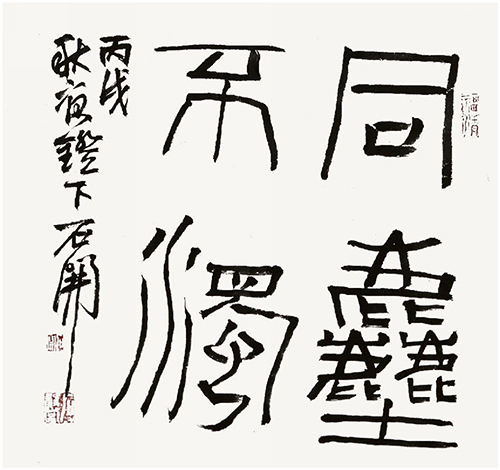 同塵
不濁
丙戌
秋夜鐙下石開